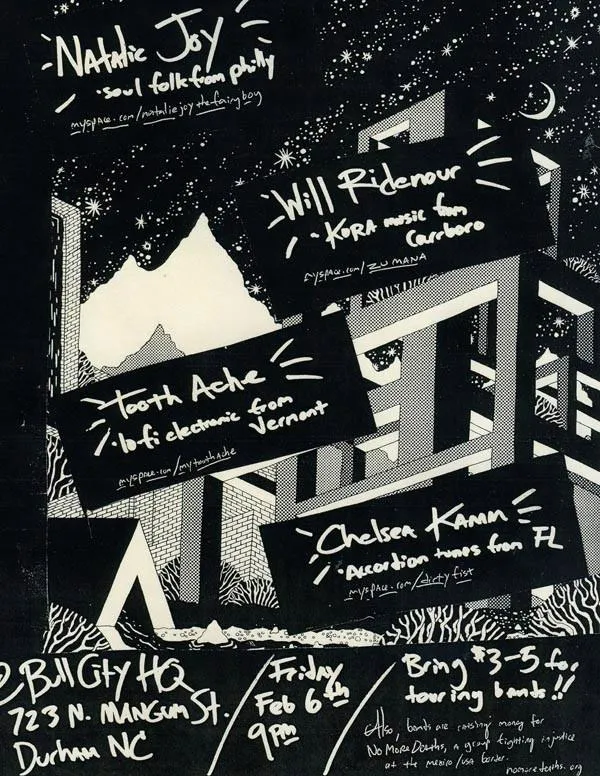 Natalie Joy
·soul folk from philly
myspace.com/nataliejoythefairyboy
Will Ridenour
·KORA music from
Carrboro
myspace.com/ZUMANA
Tooth Ache
·lo-fi electronic from
Vermont
myspace.com/mytoothache
Chelsea Kamm
·Accordion tunes from FL
myspace.com/dirtyfist
@ Bull City HQ
723 N. MANGUM St.
Durham NC
Friday
Feb 6th
9pm
Bring $3-5 for
touring bands!!
Also, bands are raising money for
No More Deaths, a group fighting injustice
at the mexico/usa border.
nomoredeaths.org